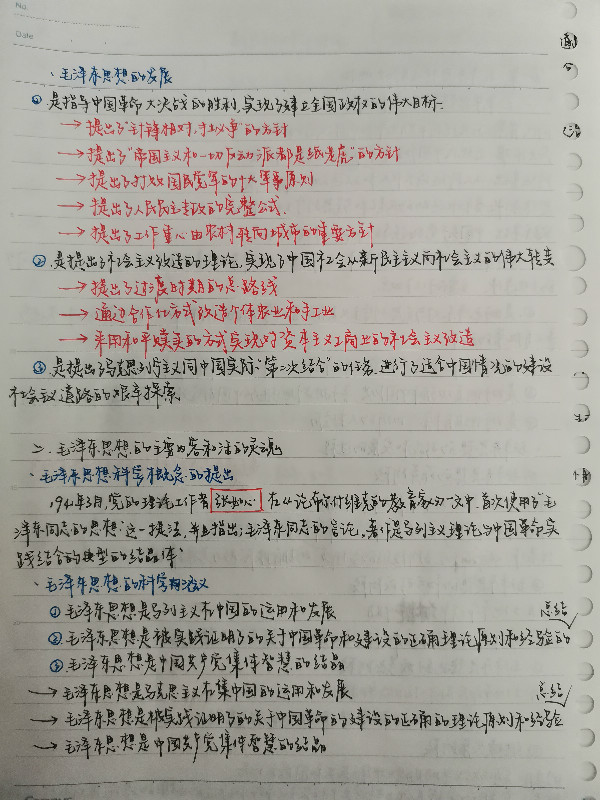 No.
Date
·毛泽东思想的发展
①是指导中国革命大决战的胜利,实现了建立全国政权的伟大目标.
→提出了"针锋相对,寸土必争"的方针
→提出了"帝国主义和一切反动派都是纸老虎"的方针
→提出了打败国民党军的十大军事原则
→提出了人民民主专政的完整公式.
→提出了工作重心由农村转向城市的重要方针
②是提出了社会主义改造的理论,实现了中国社会从新民主主义向社会主义的伟大转变
→提出了过渡时期的总路线
→通过合作化方式改造个体农业和手工业
→采用和平赎买的方式实现对资本主义工商业的社会主义改造
③是提出了马克思列宁主义同中国实际"第二次结合"的任务,进行了适合中国情况的建设
社会主义道路的艰辛探索.
二、毛泽东思想的主要内容和活的灵魂
·毛泽东思想科学概念的提出
1941年3月,党的理论工作者张如心 在《论布尔什维克的教育家》一文中,首次使用了"毛
泽东同志的思想"这一提法,并且指出:毛泽东同志的言论,著作是马列主义理论与中国革命实
践结合的典型的结晶体
·毛泽东思想的科学涵义
①毛泽东思想是马列主义在中国的运用和发展 总结
②毛泽东思想是被实践证明了的关于中国革命和建设的正确理论原则和经验的
③毛泽东思想是中国共产党集体智慧的结晶
→毛泽东思想是马克思主义在中国的运用和发展 总结
→毛泽东思想是被实践证明了的关于中国革命的建设的正确的理论原则和经验
→毛泽东思想是中国共产党集体智慧的结晶